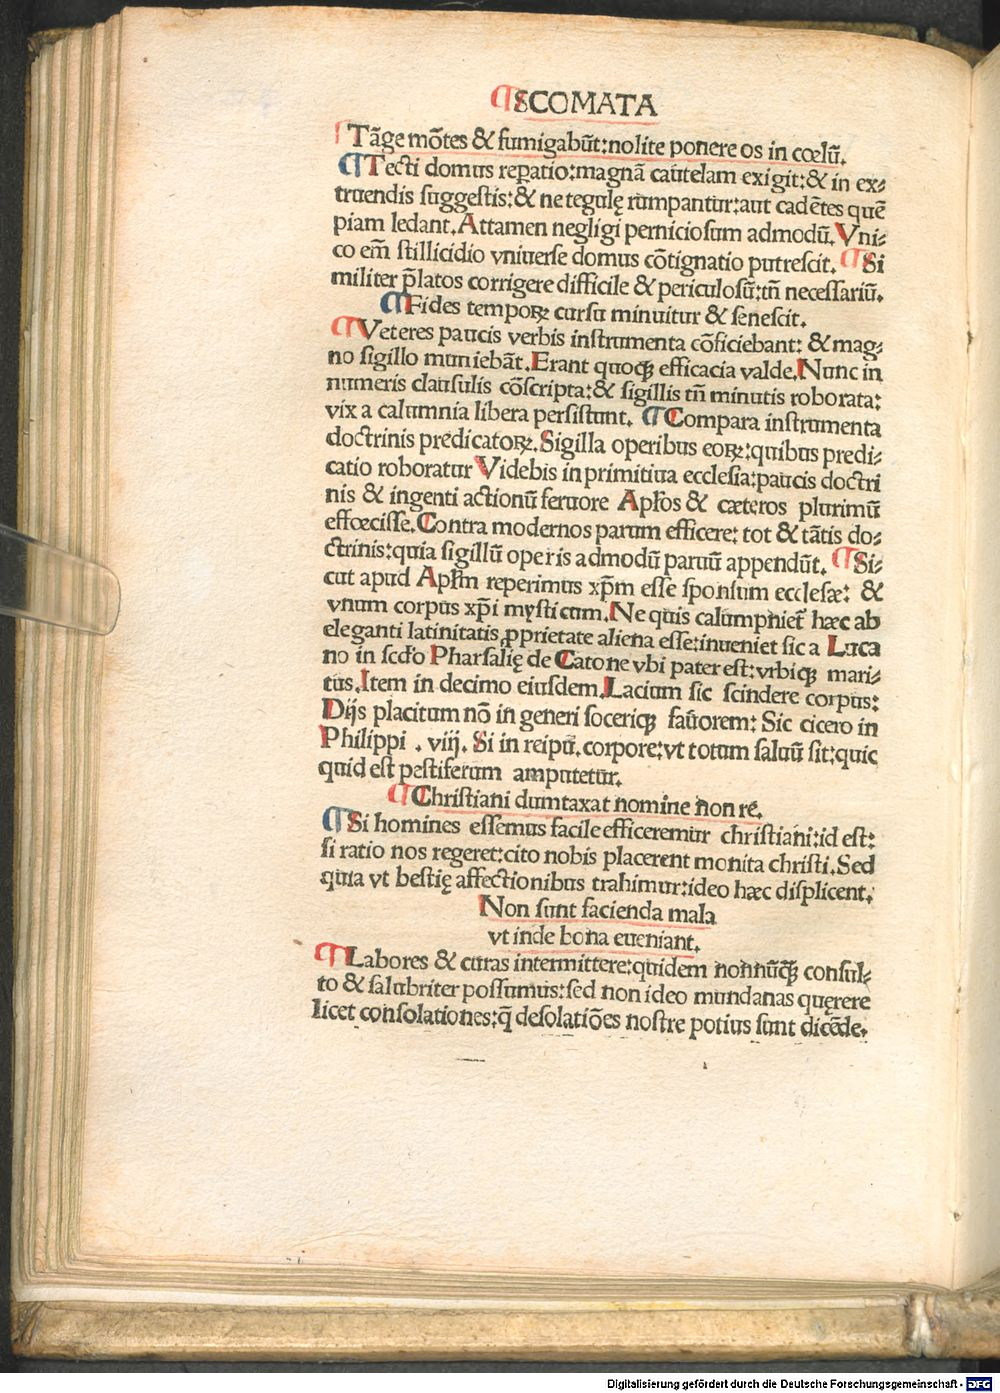 ¶SCOMATA
Tãge mõtes & fumigabũt:nolite ponere os in cœlũ.
¶Tecti domus reꝑatio:magnã cautelam exigit:& in ex⸗
truendis suggestis:& ne tegulę rumpantur:aut cadẽtes quẽ
piam ledant. Attamen negligi perniciosum admodũ. Vni⸗
co em̃ stillicidio vniuerse domus cõtignatio putrescit. ¶Si
militer p̃latos corrigere difficile & periculosũ:tñ necessariũ.
¶Fides temporꝝ cursu minuitur & senescit.
¶Veteres paucis verbis instrumenta cõficiebant: & mag⸗
no sigillo muniebãt. Erant quoqꝫ efficacia valde. Nunc in
numeris clausulis cõscripta:& sigillis tñ minutis roborata:
vix a calumnia libera persistunt. ¶Compara instrumenta
doctrinis predicatorꝝ. Sigilla operibus eorꝝ:quibus predi⸗
catio roboratur Videbis in primitiua ecclesia:paucis doctri
nis & ingenti actionũ feruore Apl'os & cæteros plurimũ
effœcisse. Contra modernos parum efficere: tot & tãtis do⸗
ctrinis:quia sigillũ operis admodũ paruũ appendũt. ¶Si⸗
cut apud Apl'm reperimus xp̃m esse sponsum ecclesæ: &
vnum corpus xp̃i mysticum. Ne quis calumphiet̃ hæc ab
eleganti latinitatis ꝓprietate aliena esse:inueniet sic a Luca
no in scd'o Pharsalię de Catone vbi pater est:vrbiqꝫ mari⸗
tus. Item in decimo eiusdem. Lacium sic scindere corpus:
Dijs placitum nõ in generi socericqꝫ fauorem: Sic cicero in
Philippi . viij. Si in reipu. corpore:vt totum saluũ sit:quic
quid est pestiferum amputetur.
¶Christiani dumtaxat nomine non re.
¶Si homines essemus facile efficeremur christiani:id est:
si ratio nos regeret:cito nobis placerent monita christi. Sed
quia vt bestię affectionibus trahimur:ideo hæc displicent.
Non sunt facienda mala
vt inde bona eueniant.
¶Labores & curas intermittere:quidem nonnũqꝫ consul⸗
to & salubriter possumus:sed non ideo mundanas quęrere
licet consolationes:q̃ desolatiões nostre potius sunt dicẽde.
Digitalisierung gefördert durch die Deutsche Forschungsgemeinschaft - DFG